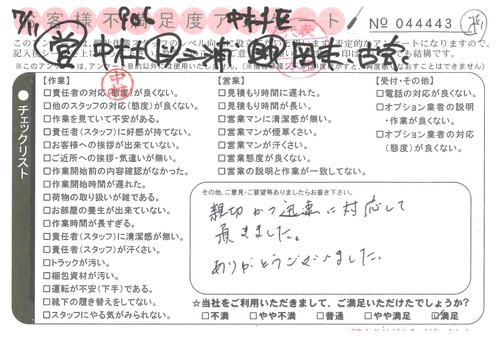 お客様不満足度アンケート
№ 044443
チェックリスト
【作業】
□責任者の対応(態度)が良くない。
□他のスタッフの対応(態度)が良くない。
□作業を見ていて不安がある。
□責任者(スタッフ)に好感が持てない。
□お客様への挨拶が出来ていない。
□ご近所への挨拶・気遣いが無い。
□作業開始前の内容確認がなかった。
□作業開始時間が遅れた。
□荷物の取り扱いが雑である。
□お部屋の養生が出来ていない。
□作業時間が長すぎる。
□責任者(スタッフ)に清潔感が無い。
□責任者(スタッフ)が汗くさい。
□トラックが汚い。
□梱包資材が汚い。
□運転が不安(下手)である。
□靴下の履き替えをしてない。
□スタッフにやる気がみられない。
【営業】
□見積もり時間に遅れた。
□見積もり時間が長い。
□営業マンに清潔感が無い。
□営業マンが煙草くさい。
□営業マンが汗くさい。
□営業態度が良くない。
□営業の説明と作業が一致してない。
【受付・その他】
□電話の対応が良くない。
□オプション業者の説明
・作業が良くない。
□オプション業者の対応
(態度)が良くない。
その他、ご意見・ご要望等ありましたらお書き下さい。
親切かつ迅速に対応して
頂きました。
ありがとうございました。
☆当社をご利用いただきまして、ご満足いただけたでしょうか?
□不満 □やや不満 □普通 □やや満足 ☑満足